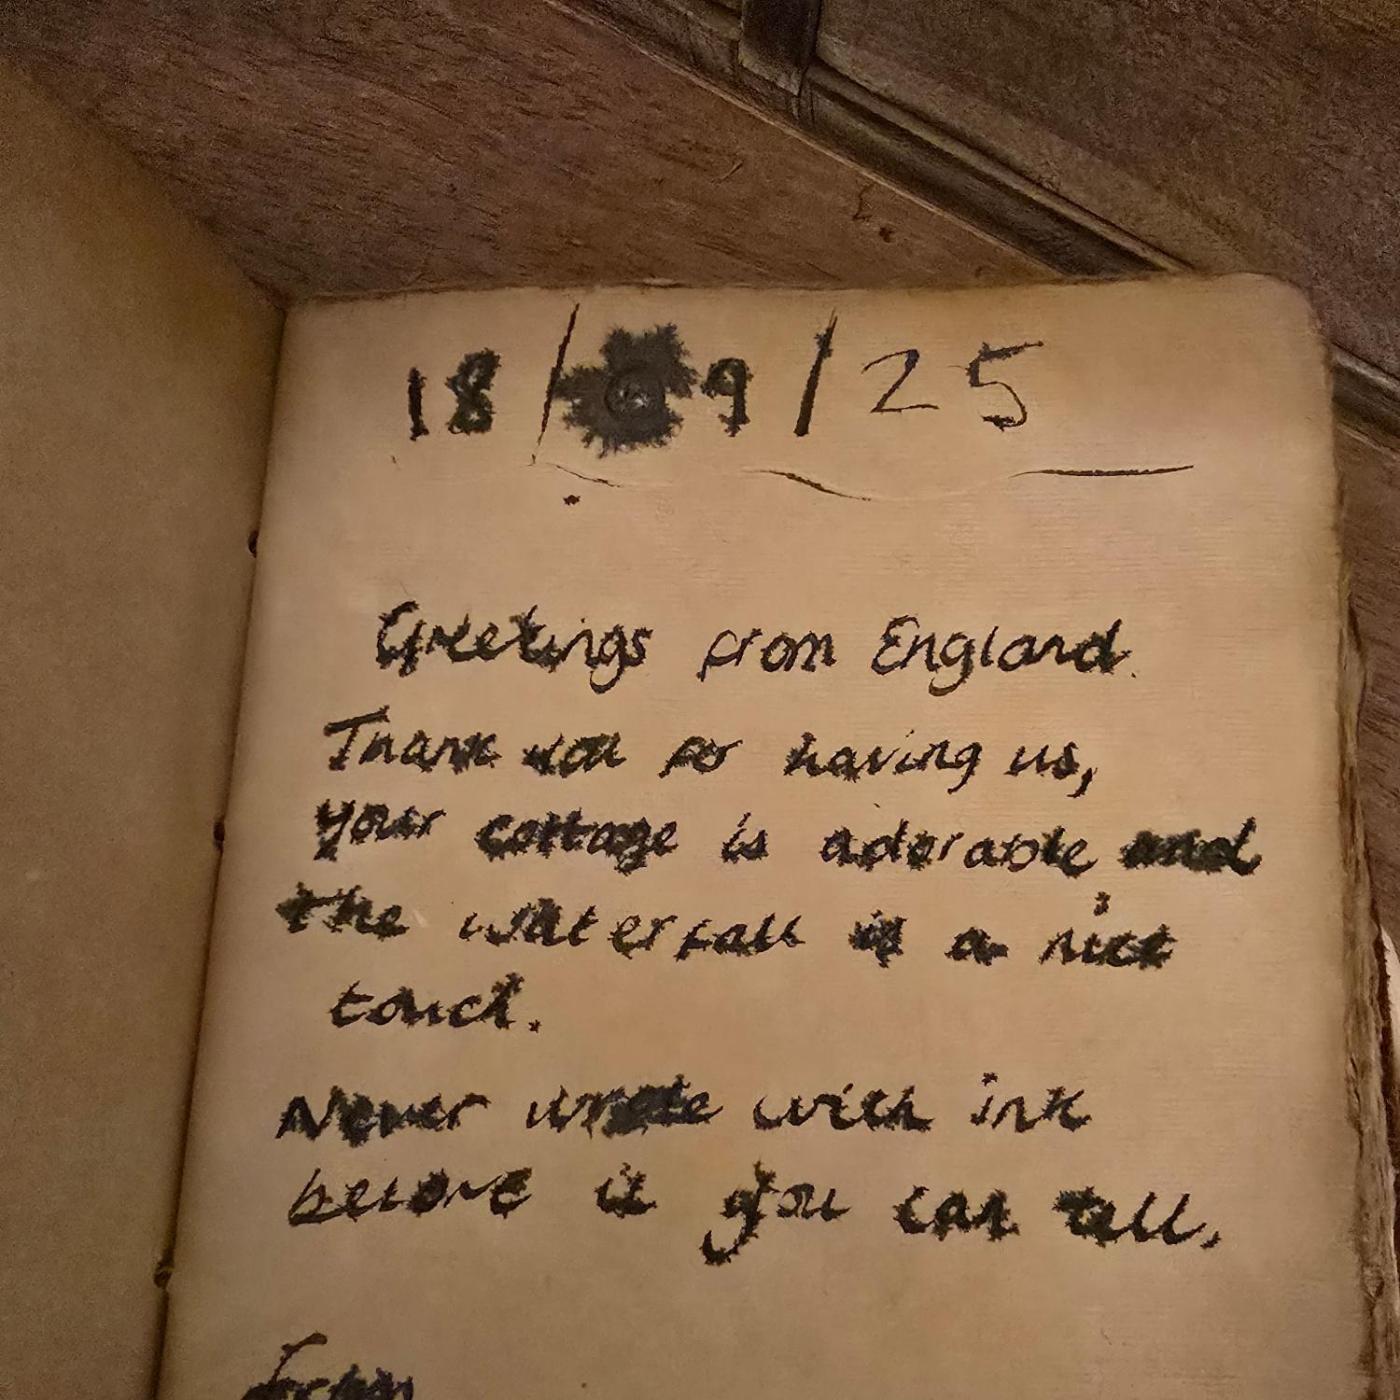 18/09/25
Greetings from England.
Thank you for having us,
your cottage is adorable and
the waterfall is a nice
touch.
Never wrote with ink
before if you can tell.